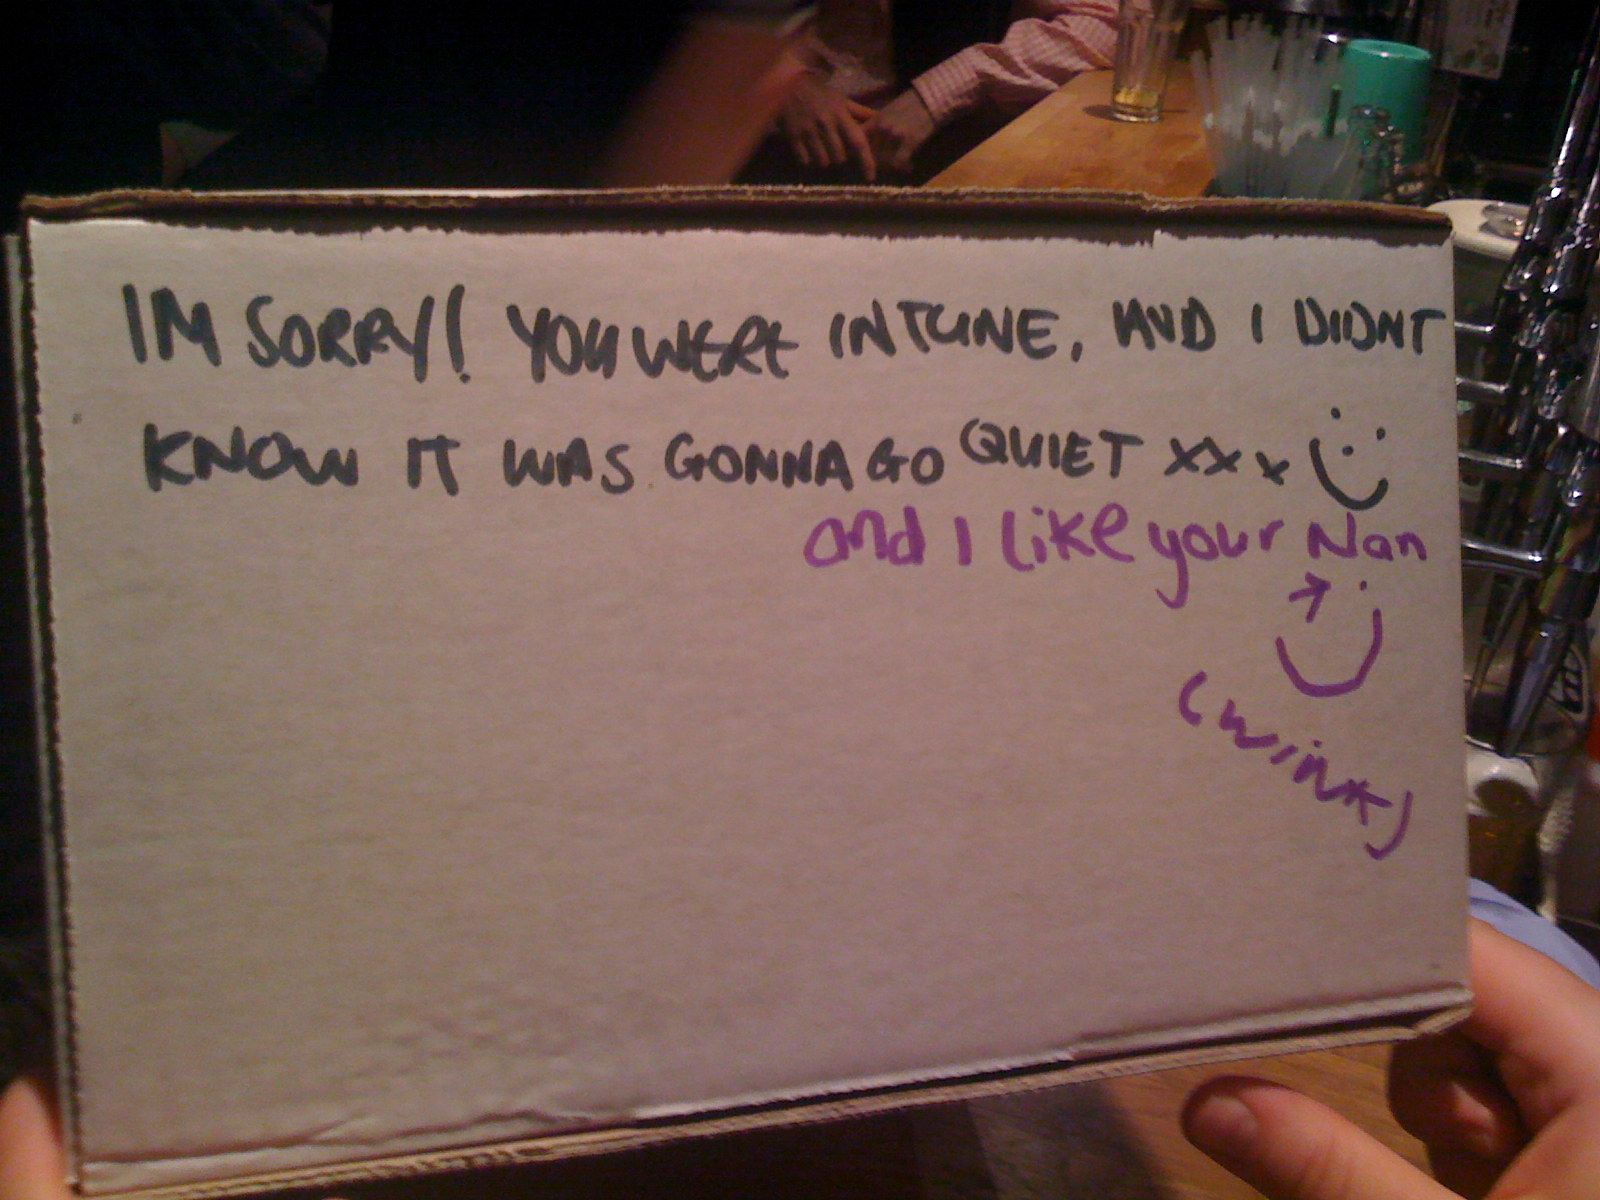 IM SORRY! YOU WERE IN TUNE, AND I DIDNT
KNOW IT WAS GONNA GO QUIET xxx
and I like your Nan
(wink)